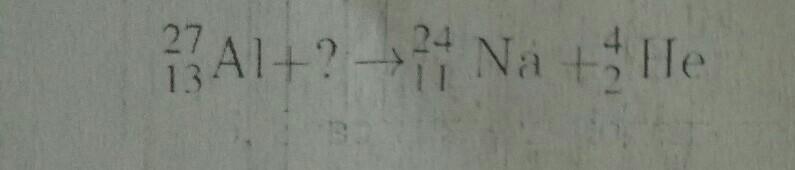 ²⁷₁₃Al+? → ²⁴₁₁Na + ⁴₂He